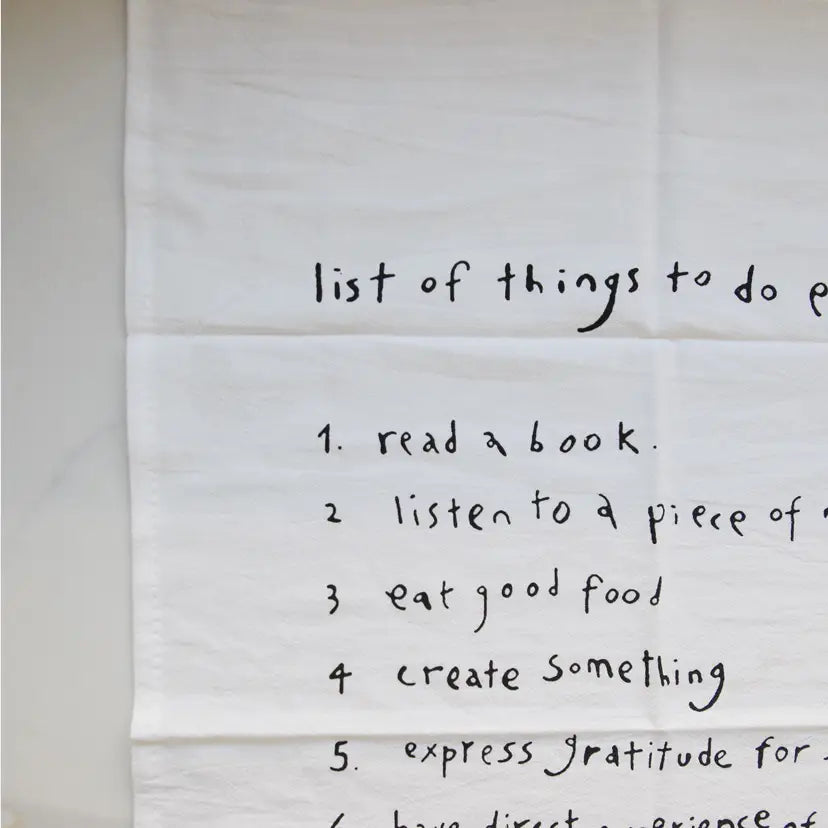 list of things to do e
1. read a book.
2 listen to a piece of
3 eat good food
4 create something
5. express gratitude for
have direct experience of